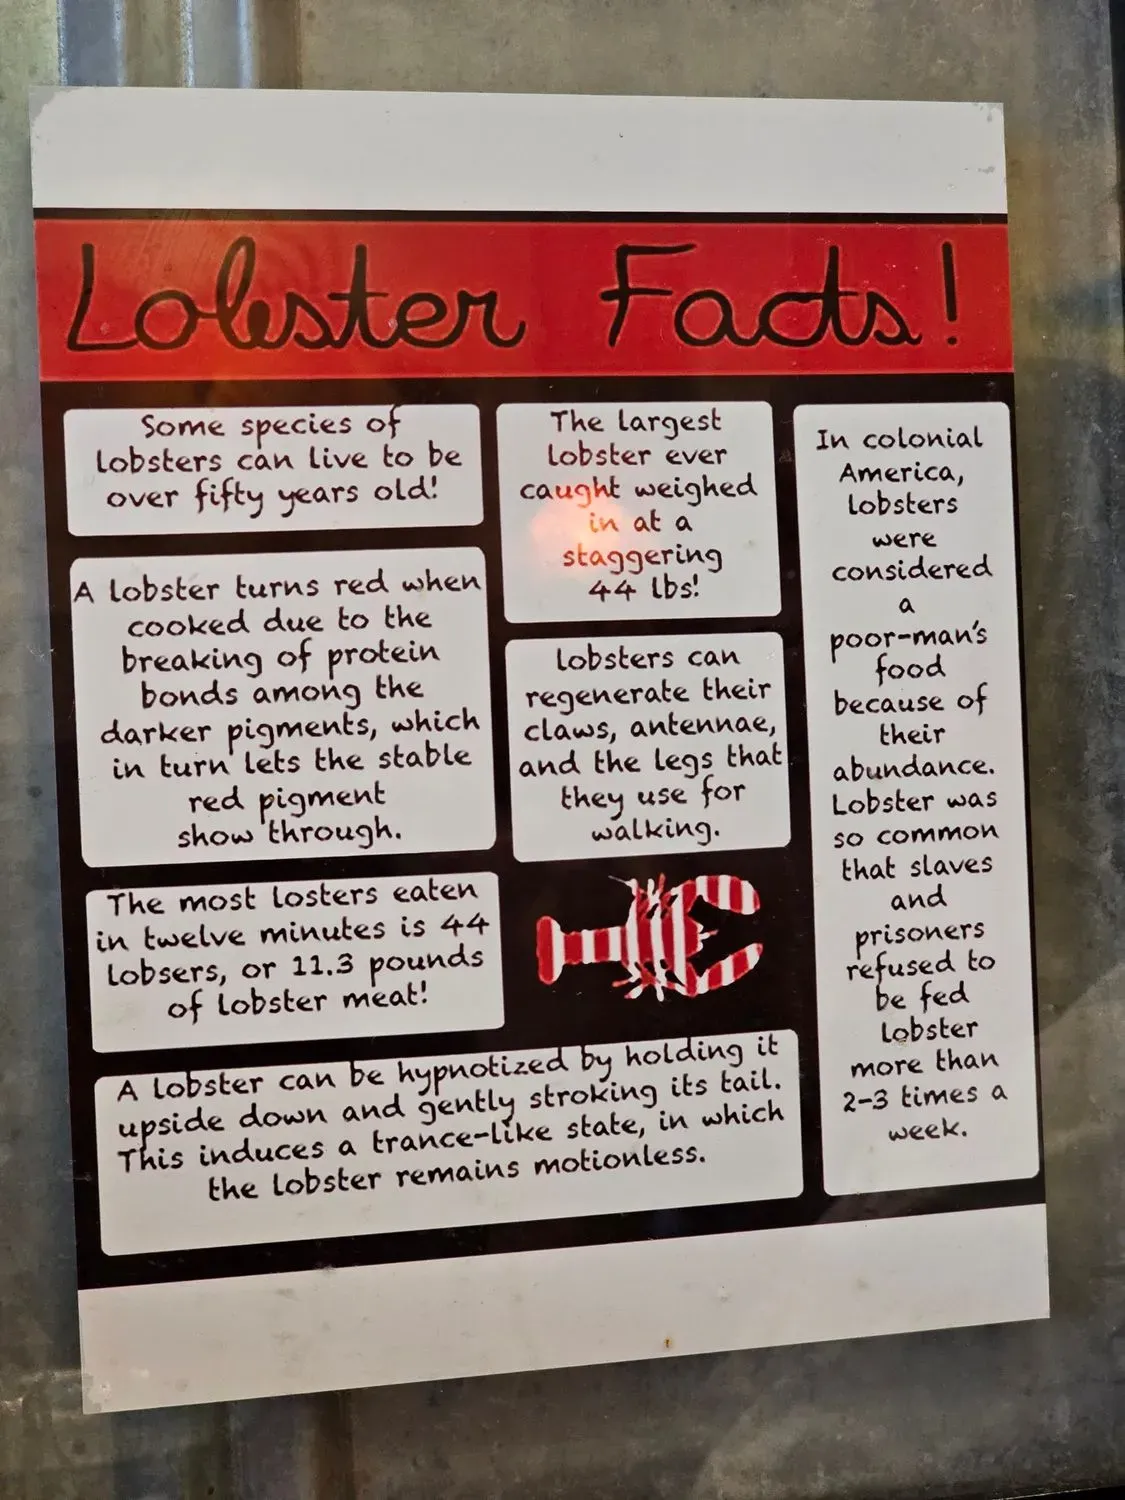 Lobster Facts!
Some species of
lobsters can live to be
over fifty years old!
A lobster turns red when
cooked due to the
breaking of protein
bonds among the
darker pigments, which
in turn lets the stable
red pigment
show through.
The most losters eaten
in twelve minutes is 44
lobsers, or 11.3 pounds
of lobster meat!
The largest
lobster ever
caught weighed
in at a
staggering
44 lbs!
lobsters can
regenerate their
claws, antennae,
and the legs that
they use for
walking.
A lobster can be hypnotized by holding it
upside down and gently stroking its tail.
This induces a trance-like state, in which
the lobster remains motionless.
In colonial
America,
lobsters
were
considered
a
poor-man's
food
because of
their
abundance.
Lobster was
so common
that slaves
and
prisoners
refused to
be fed
lobster
more than
2-3 times a
week.